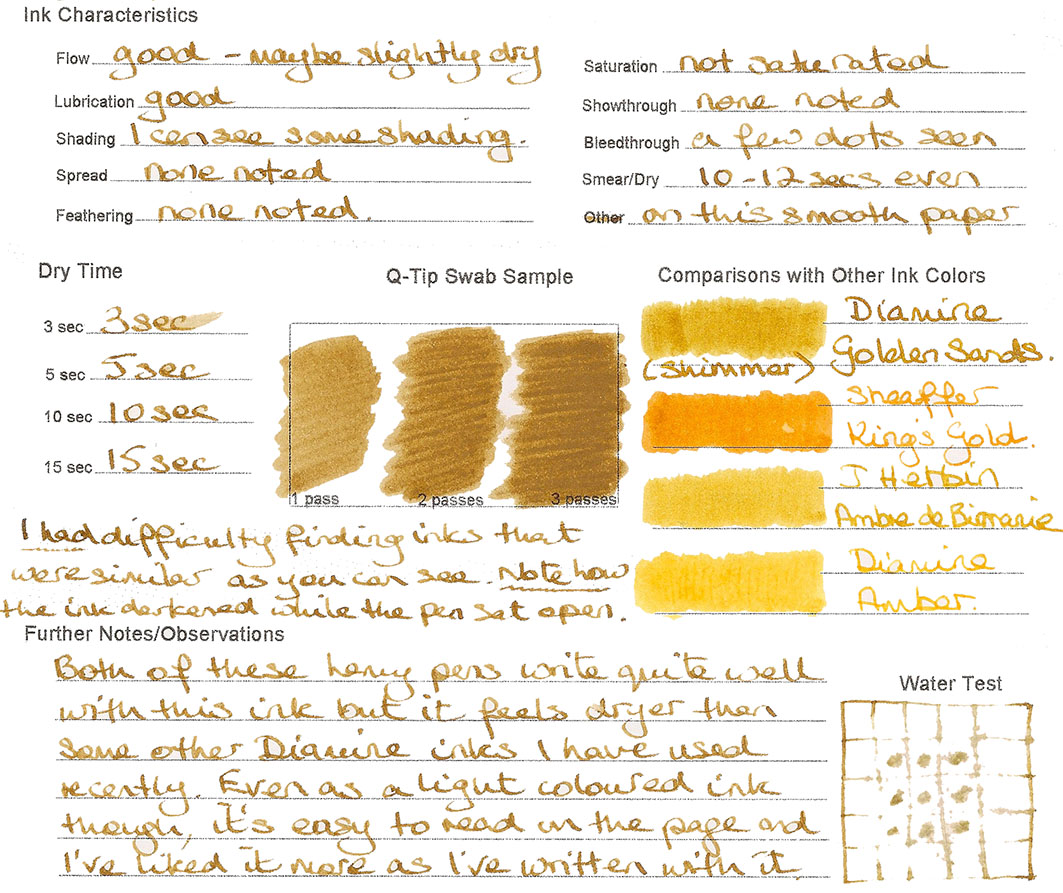 Ink Characteristics
Flow good - maybe slightly dry
Lubrication good
Shading I can see some shading.
Spread none noted
Feathering none noted.
Saturation not saturated
Showthrough none noted
Bleedthrough a few dots seen
Smear/Dry 10-12 secs even
Other on this smooth paper
Dry Time
3 sec 3 sec
5 sec 5 sec
10 sec 10 sec
15 sec 15 sec
Q-Tip Swab Sample
1 pass 2 passes 3 passes
Comparisons with Other Ink Colors
Diamine
Golden Sands.
(shimmer)
Sheaffer
King's Gold.
J Herbin
Ambre de Birmanie
Diamine
Amber.
I had difficulty finding inks that
were similar as you can see. Note how
the ink darkened while the pen sat open.
Further Notes/Observations
Both of these heavy pens write quite well
with this ink but it feels dryer than
some other Diamine inks I have used
recently. Even as a light coloured ink
though, it's easy to read on the page and
I've liked it more as I've written with it.
Water Test